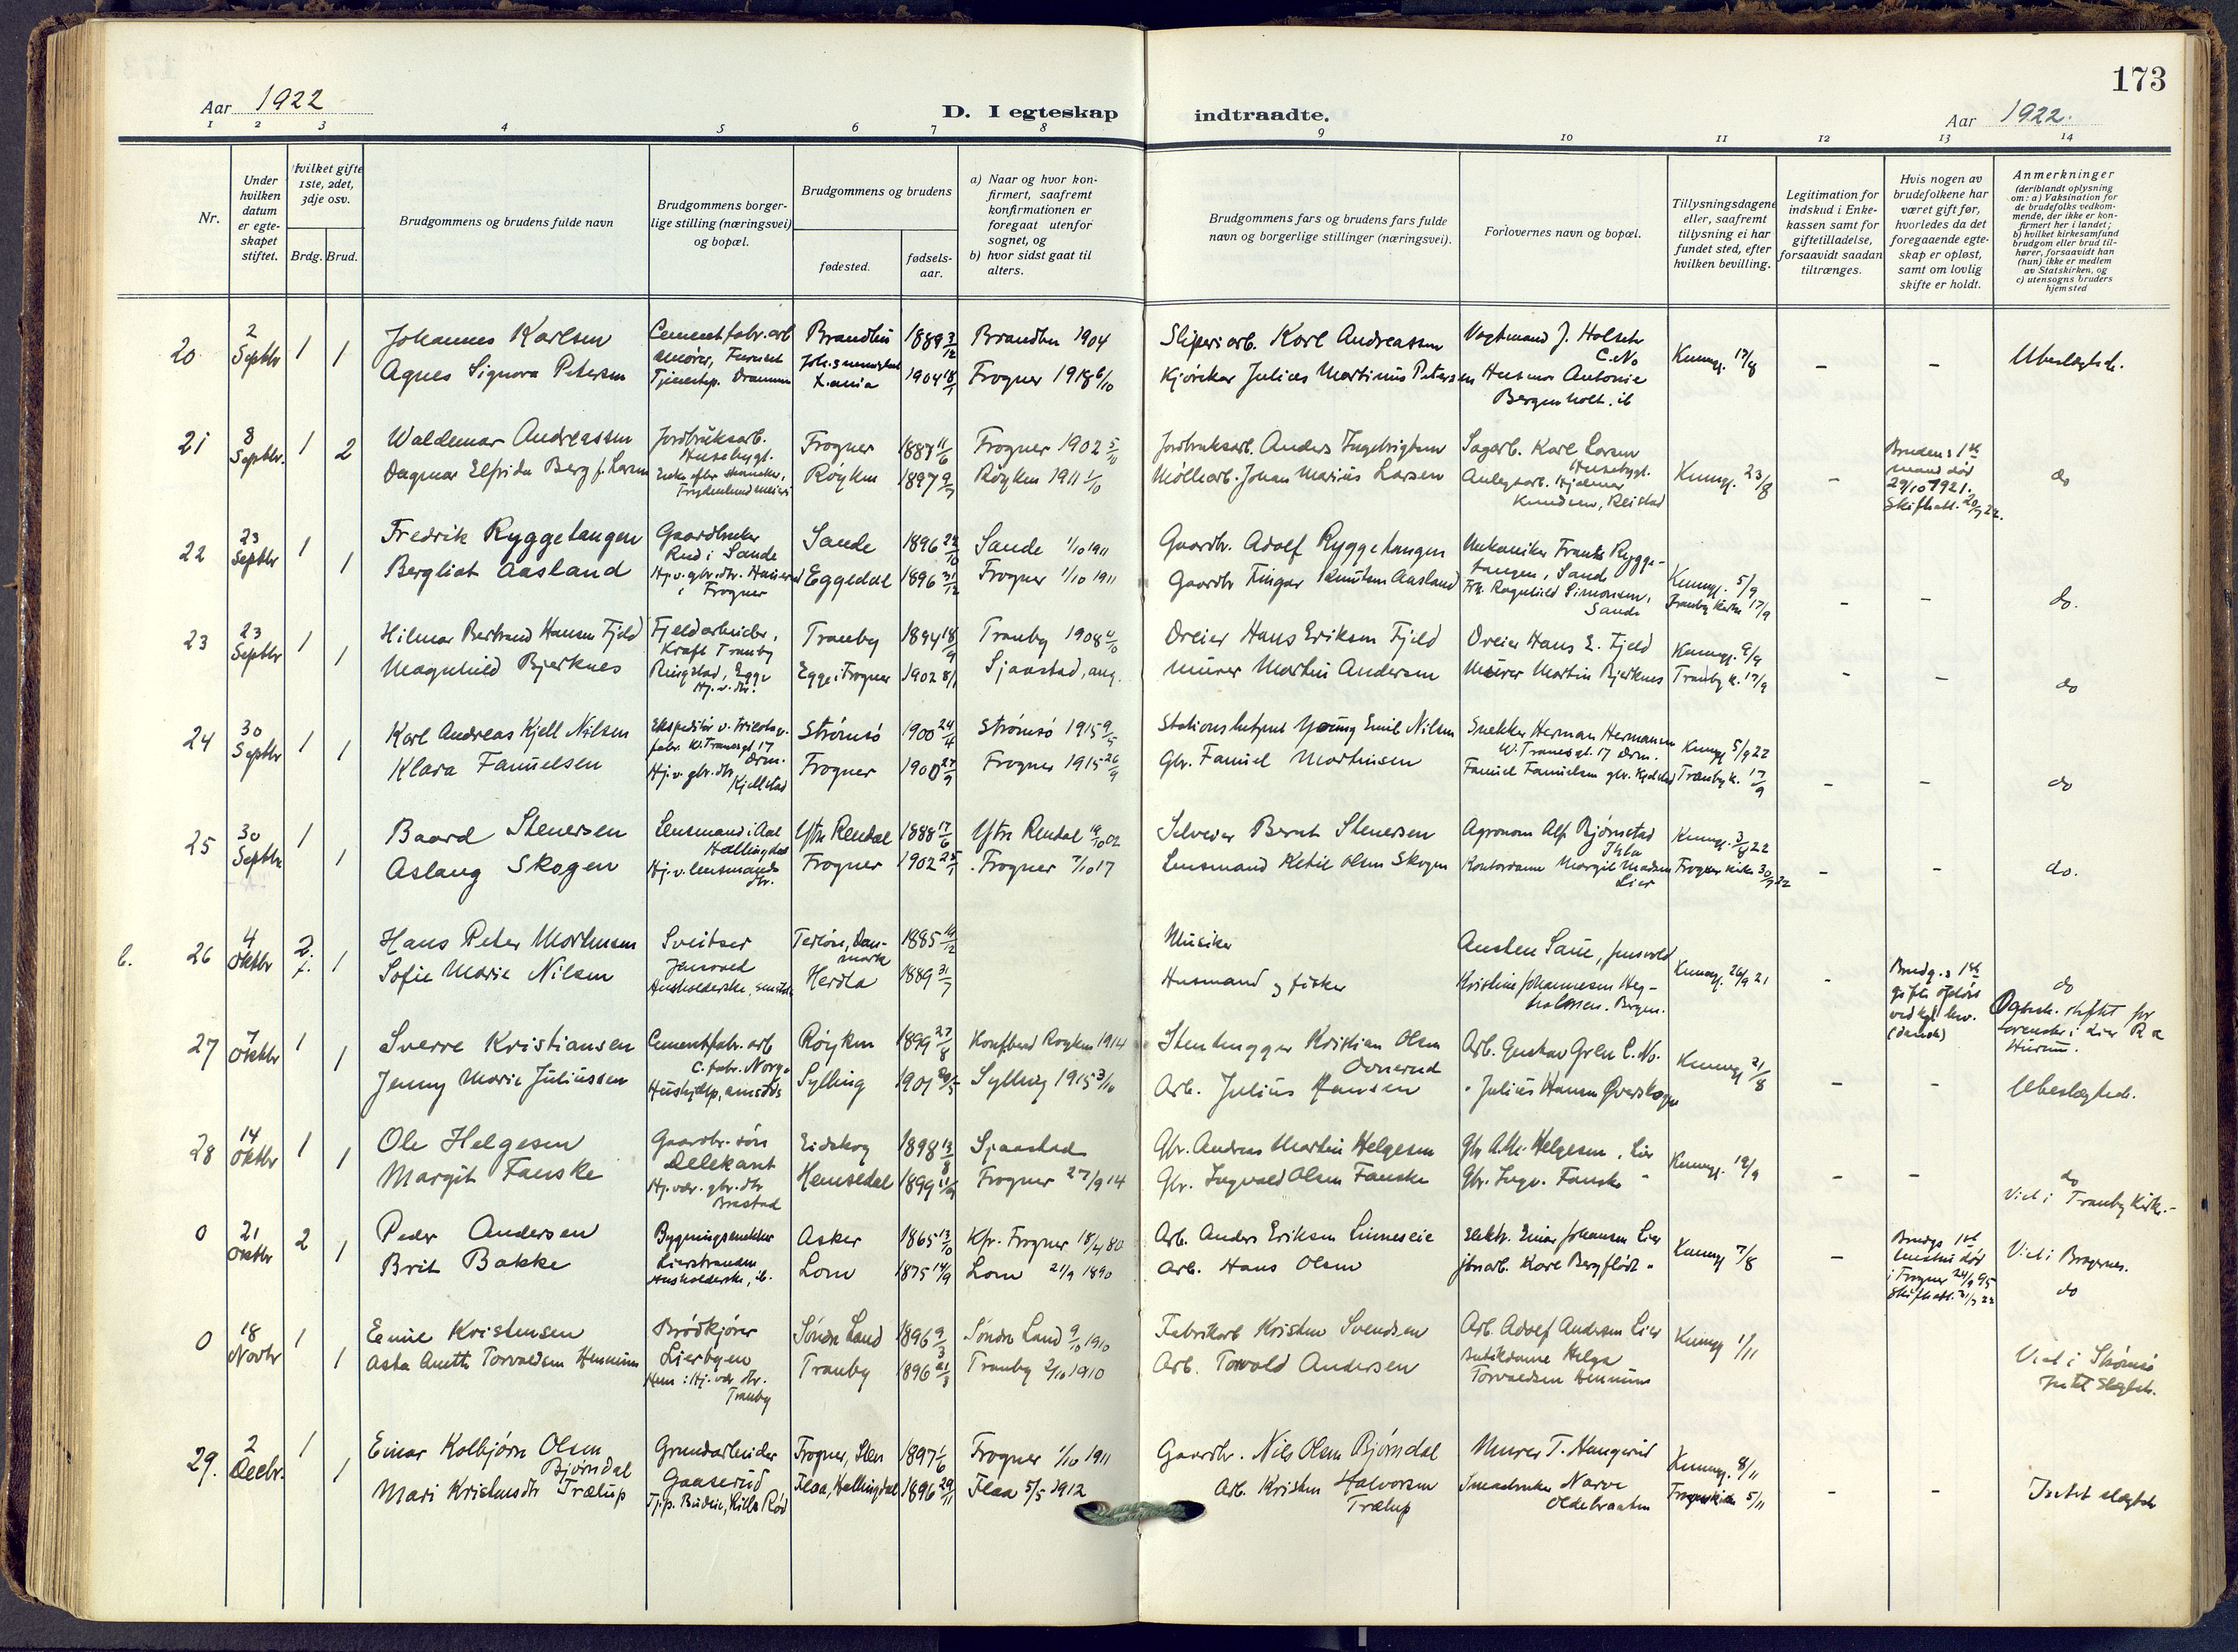 173
Aar 1922
D. I egteskap indtraadte.
Aar 1922.
1 2 3 4 5 6 7 8 9 10 11 12 13 14
Nr.
Under
hvilken
datum
er egte-
skapet
stiftet.
Hvilket gifte
1ste, 2det,
3dje osv.
Brdg. Brud.
Brudgommens og brudens fulde navn
Brudgommens borger-
lige stilling (næringsvei)
og bopæl.
Brudgommens og brudens
fødested.
fødsels-
aar.
a) Naar og hvor kon-
firmert, saafremt
konfirmationen er
foregaat utenfor
sognet, og
b) hvor sidst gaat til
alters.
Brudgommens fars og brudens fars fulde
navn og borgerlige stillinger (næringsvei).
Forlovernes navn og bopæl.
Tillysningsdagene
eller, saafremt
tillysning ei har
fundet sted, efter
hvilken bevilling.
Legitimation for
indskud i Enke-
kassen samt for
giftetilladelse,
forsaavidt saadan
tiltrænges.
Hvis nogen av
brudefolkene har
været gift før,
hvorledes da det
foregaaende egte-
skap er opløst,
samt om lovlig
skifte er holdt.
Anmerkninger
(deriblandt oplysning
om: a) Vaksination for
de brudefolks vedkom-
mende, der ikke er kon-
firmert her i landet;
b) hvilket kirkesamfund
brudgom eller brud til-
hører, forsaavidt han
(hun) ikke er medlem
av Statskirken, og
c) utensogns bruders
hjemsted
20 2 Septbr 1 1
Johannes Karlsen
Agnes Signora Petersen
Cementfabr. arb
Tjenestep. Drammen
Brandbu
X.ania
1889 3/12
1904 18/1
Brandbu 1904
Frogner 1918 6/10
Sliperiarb. Karl Andreassen
Kjørekar Julius Martinus Petersen
Vagtmand J. Holseth
C. No
Husmor Antonie
Bergenholt. ib
Kunng. 17/8
–
–
Ubeslegtede.
21 8 Septbr. 1 2
Waldemar Andreassen
Dagmar Elfrida Berg f. Larsen
Jordbruksarb.
Husebygt.
Frogner
Røyken
1887 11/6
1897 9/7
Frogner 1902 5/10
Røyken 1911 1/10
Jordbruksarb. Anders Ingebrigtsen
Møllearb. Johan Marius Larsen
Sagarb. Karl Larsen
Husebygt.
Anlegsarb. Hjalmar
Knudsen, Reistad
Kunng. 23/8
–
Brudens 1ste
mand død
29/10 1921.
Skifteatt. 20/7 22.
do
22 23 Septbr 1 1
Fredrik Ryggetangen
Bergliot Aasland
Gaardbruker
Rud i Sande
i Frogner
Sande
Eggedal
1896 22/10
1896 31/12
Sande 1/10 1911
Frogner 1/10 1911
Gaardbr. Adolf Ryggetangen
Gaardbr Fingar Knutsen Aasland
Mekaniker Frants Rygge-
tangen, Sande
Frk. Ragnhild Simonsen,
Sande
Kunng. 5/9
Tranby kirke 17/9
–
–
do.
23 23 Septbr 1 1
Hilmar Bertrand Hansen Fjeld
Magnhild Bjerknes
Fjeldarbeider,
Kraft Tranby
Ringstad, Egge
Hj. v. dtr.
Tranby
Egge i Frogner
1894 18/9
1902 8/1
Tranby 1908 4/10
Sjaastad, aug.
Dreier Hans Eriksen Fjeld
Murer Martin Andersen
Dreier Hans E. Fjeld
Murer Martin Bjerknes
Kunng. 9/9
Tranby k. 17/9
–
–
do
24 30 Septbr 1 1
Karl Andreas Kjell Nilsen
Klara Fanuelsen
Ekspeditør v.
fabr. W. Tranesgt 17
Drm.
Hj. v. gbr. dtr
Kjellstad
Strømsø
Frogner
1900 24/4
1900 27/9
Strømsø 1915 9/5
Frogner 1915 26/9
Stationsbetjent Young Emil Nilsen
Gbr. Fanuel Martinsen
Snekker Herman Hermansen
W. Tranesgt. 17 Drm.
Fanuel Fanuelsen gbr. Kjellstad
Kunng 5/9 22
Tranby k. 17/9
–
–
do
25 30 Septbr 1 1
Baard Stenersen
Aslaug Skogen
Lensmand i Aal
Hallingdal
Hj. v. lensmands
dtr.
Ytre Rendal
Frogner
1888 17/6
1902 25/1
Ytre Rendal 19/10 02
Frogner 7/10 17
Selveier Bernt Stenersen
Lensmand Ketil Olsen Skogen
Agronom Alf Bjørnstad
Kontordame Margit Madsen
Lier
Kunng. 3/8 22
Frogner kirke 30/7 22
–
–
do.
b. 26 4 Oktbr 2. f. 1
Hans Peter Mortensen
Sofie Marie Nilsen
Sveitser
Jensvold
Husholderske, smstds
Terløse, Dan-
mark
Herdla
1885 14/12
1889 31/7
Musiker
Husmand og fisker
Austen Saue, Jensvold
Kristine Johannesen
Bergen.
Kunng. 26/9 21
–
Brudg.s 1ste
gifte opløst
ved kgl. bev.
(dansk)
do
27 7 Oktbr 1 1
Sverre Kristiansen
Jenny Marie Juliussen
Cementfabr. arb
C. fabr. Norge
Hushjelp, smstds
Røyken
Sylling
1899 27/8
1901 20/5
Konfberd Røyken 1914
Sylling 1915 3/10
Stenhugger Kristian Olsen
Ovnerud
Arb. Julius Hansen
Arb. Gustav Gren C. No.
" Julius Hansen Øverskogen
Kunng 21/8
–
–
Ubeslegtede.
28 14 Oktbr 1 1
Ole Helgesen
Margit Fauske
Gaardbr. søn
Delekant
Hj. vær. gbr. dtr
Brastad
Eidskog
Hemsedal
1898 13/8
1899
Sjaastad
Frogner 27/9 14
Gbr. Andreas Martin Helgesen
Gbr. Ingvald Olsen Fauske
Gbr A.M. Helgesen, Lier
Gbr. Ingv. Fauske "
Kunng. 19/9
–
–
do
Viet i Tranby Kirke.
0 21 Oktbr 2 1
Peder Andersen
Brit Bakke
Bygningssnekker
Lierstranden
Husholderske, ib.
Asker
Lom
1865 13/10
1875 14/9
Kfr. Frogner 18/4 80
Lom 21/9 1890
Arb. Anders Eriksen Linneseie
Arb. Hans Olsen
Elektr. Einar Johansen Lier
jbnarb. Kare Bergflødt "
Kunng 7/8
–
Brudgs 1ste
hustru død
i Frogner 24/9 95
Skifteatt. 31/7 22
Viet i Bragernes.
do
0 18 Novbr 1 1
Emil Kristensen
Asta Anette Torvaldsen Hennum
Brødkjører
Lierbyen
Hun: Hj. vær. dtr.
Tranby
Søndre Land
Tranby
1896 9/3
1896 21/3
Søndre Land 9/10 1910
Tranby 2/10 1910
Fabrikarb Kristen Svendsen
Arb. Torvald Andersen
Arb. Adolf Andersen Lier
Butikdame Helga
Torvaldsen Hennum
Kunng 1/11
Viet i Strømsø
Intet slegtsk.
29. 2 Decbr. 1 1
Einar Kolbjørn Olsen
Bjørndal
Mari Kristensdtr Trælup
Grundarbeider
Gaaserud
Tj.p. Budeie, Lille Rød
Frogner, Lier
Flaa, Hallingdal
1897 1/6
1896 29/11
Frogner 1/10 1911
Flaa 5/5 1912
Gaardbr. Nils Olsen Bjørndal
Arb. Kristen Halvorsen
Trælup
Murer T. Haugerud
Smaabruker Narve
Oldebraaten
Kunng. 8/11
Frogner kirke 5/11
–
–
Intet slegtsk